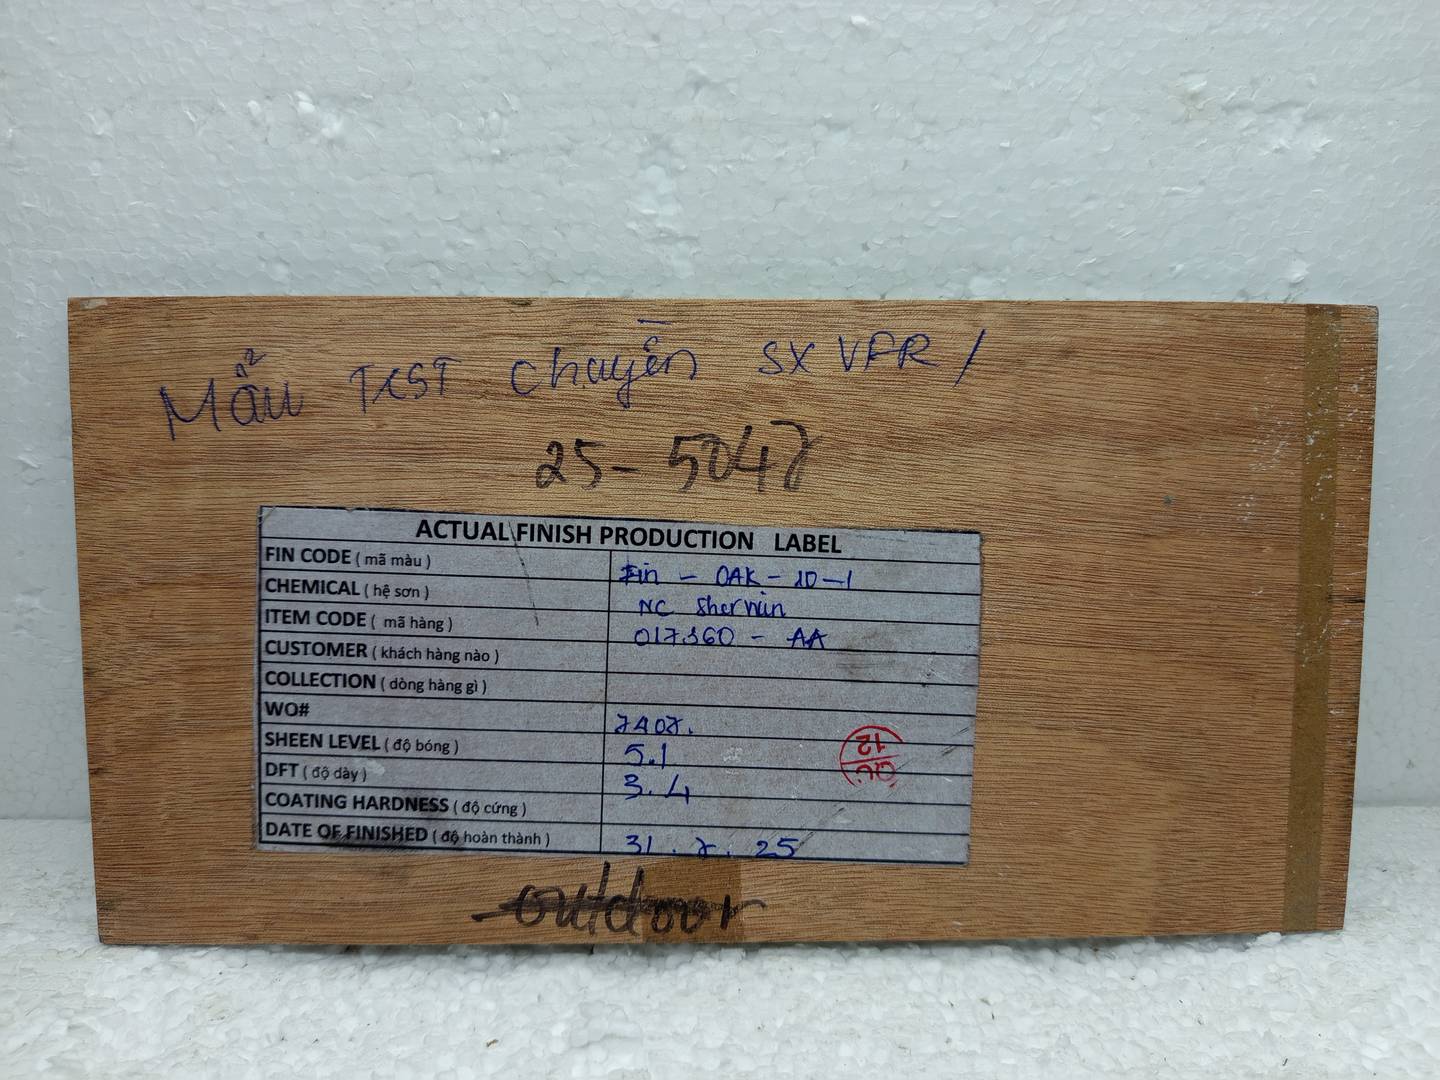 Mẫu TEST chuyền SX VFR /
25-5047
ACTUAL FINISH PRODUCTION LABEL
FIN CODE ( mã màu ) Fin - OAK - 10-1
CHEMICAL ( hệ sơn ) NC Sherwin
ITEM CODE ( mã hàng ) 017360 - AA
CUSTOMER ( khách hàng nào )
COLLECTION ( dòng hàng gì )
WO#
SHEEN LEVEL ( độ bóng ) 5.1
DFT ( độ dày ) 3.4
COATING HARDNESS ( độ cứng )
DATE OF FINISHED ( độ hoàn thành ) 31. 7. 25
QC.
12
outdoor